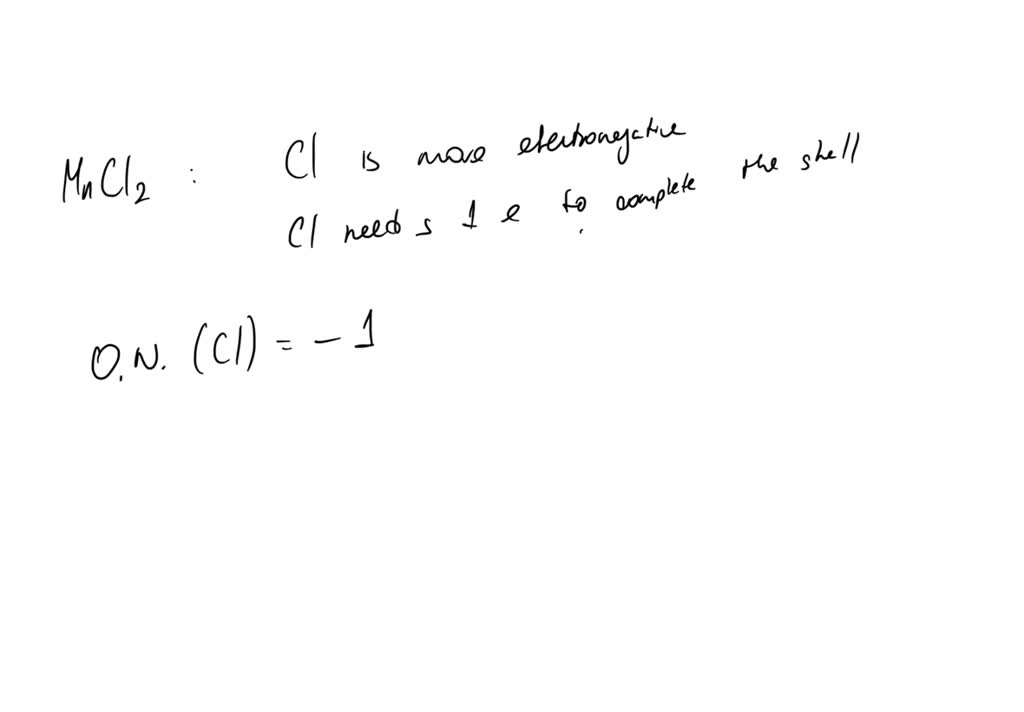 MnCl₂ : Cl is more electronegative
Cl needs 1 e to complete the shell
O.N. (Cl) = -1